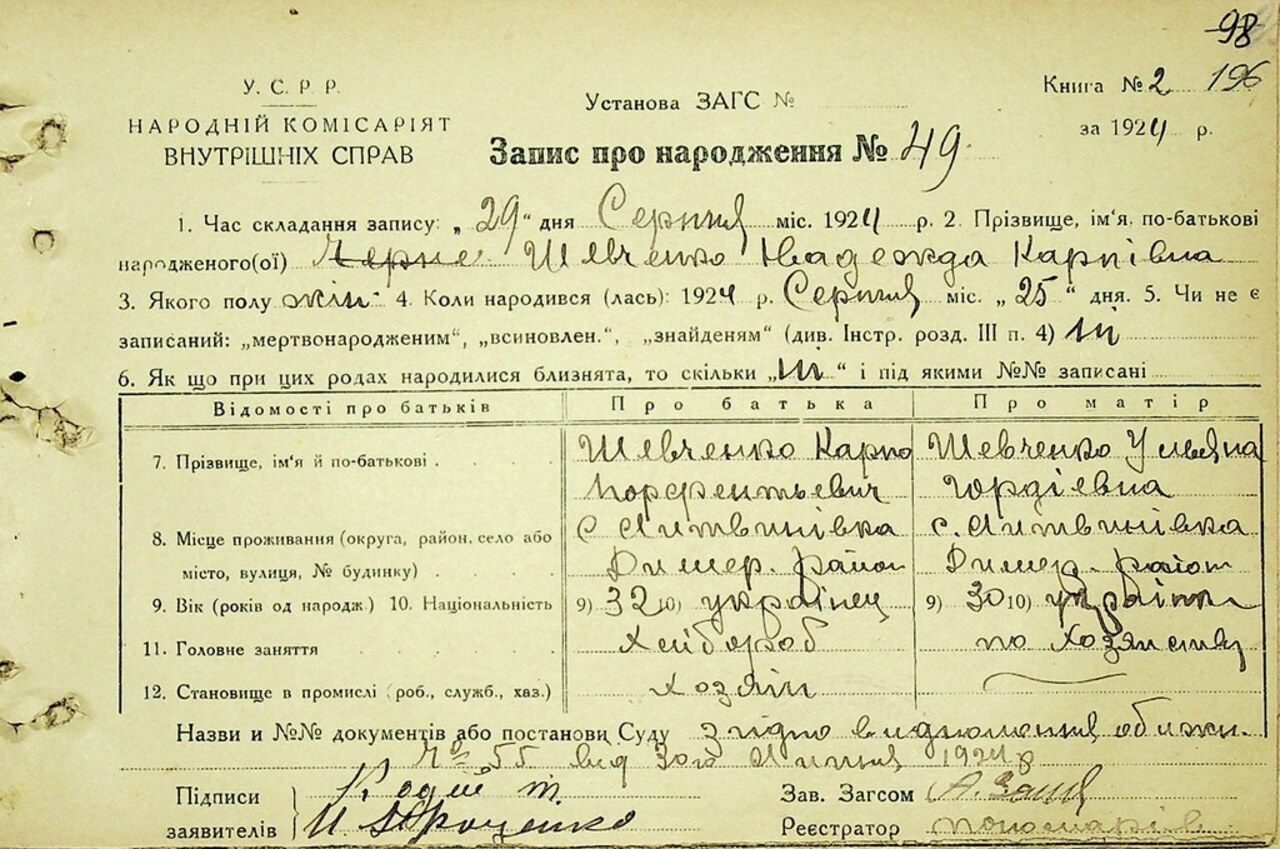 98
У. С. Р. Р.
НАРОДНІЙ КОМІСАРІЯТ
ВНУТРІШНІХ СПРАВ
Установа ЗАГС №
Книга № 2 196
за 1924 р.
Запис про народження № 49
1. Час складання запису: „29“ дня Серпня міс. 1924 р. 2. Прізвище, ім‘я, по-батькові
народженого(ої) Черне Шевченко Надежда Карпівна
3. Якого полу жін. 4. Коли народився (лась): 1924 р. Серпня міс. „25“ дня. 5. Чи не є
записаний: „мертвонародженим“, „всиновлен.“, „знайденям“ (див. Інстр. розд. III п. 4) ні
6. Як що при цих родах народилися близнята, то скільки „ні“ і під якими №№ записані
Відомості про батьків Про батька Про матір
7. Прізвище, ім‘я й по-батькові Шевченко Карпо Шевченко Ульяна
Порфентьевич Гордіевна
8. Місце проживання (округа, район, село або с Литвинівка с. Литвинівка
місто, вулиця, № будинку) Димер. район Димер. район
9. Вік (років од народж.) 10. Національність 9) 32 10) українец 9) 30 10) українка
11. Головне заняття Хлібороб по хозяйству
12. Становище в промислі (роб., служб., хаз.) хозяін
Назви и №№ документів або постанови Суду згідно
№ 55 від 30го 1924 р
Підписи
заявителів
Зав. Загсом
Реєстратор